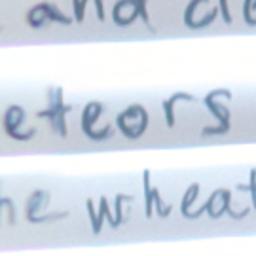 and cle
eteors
he wheat